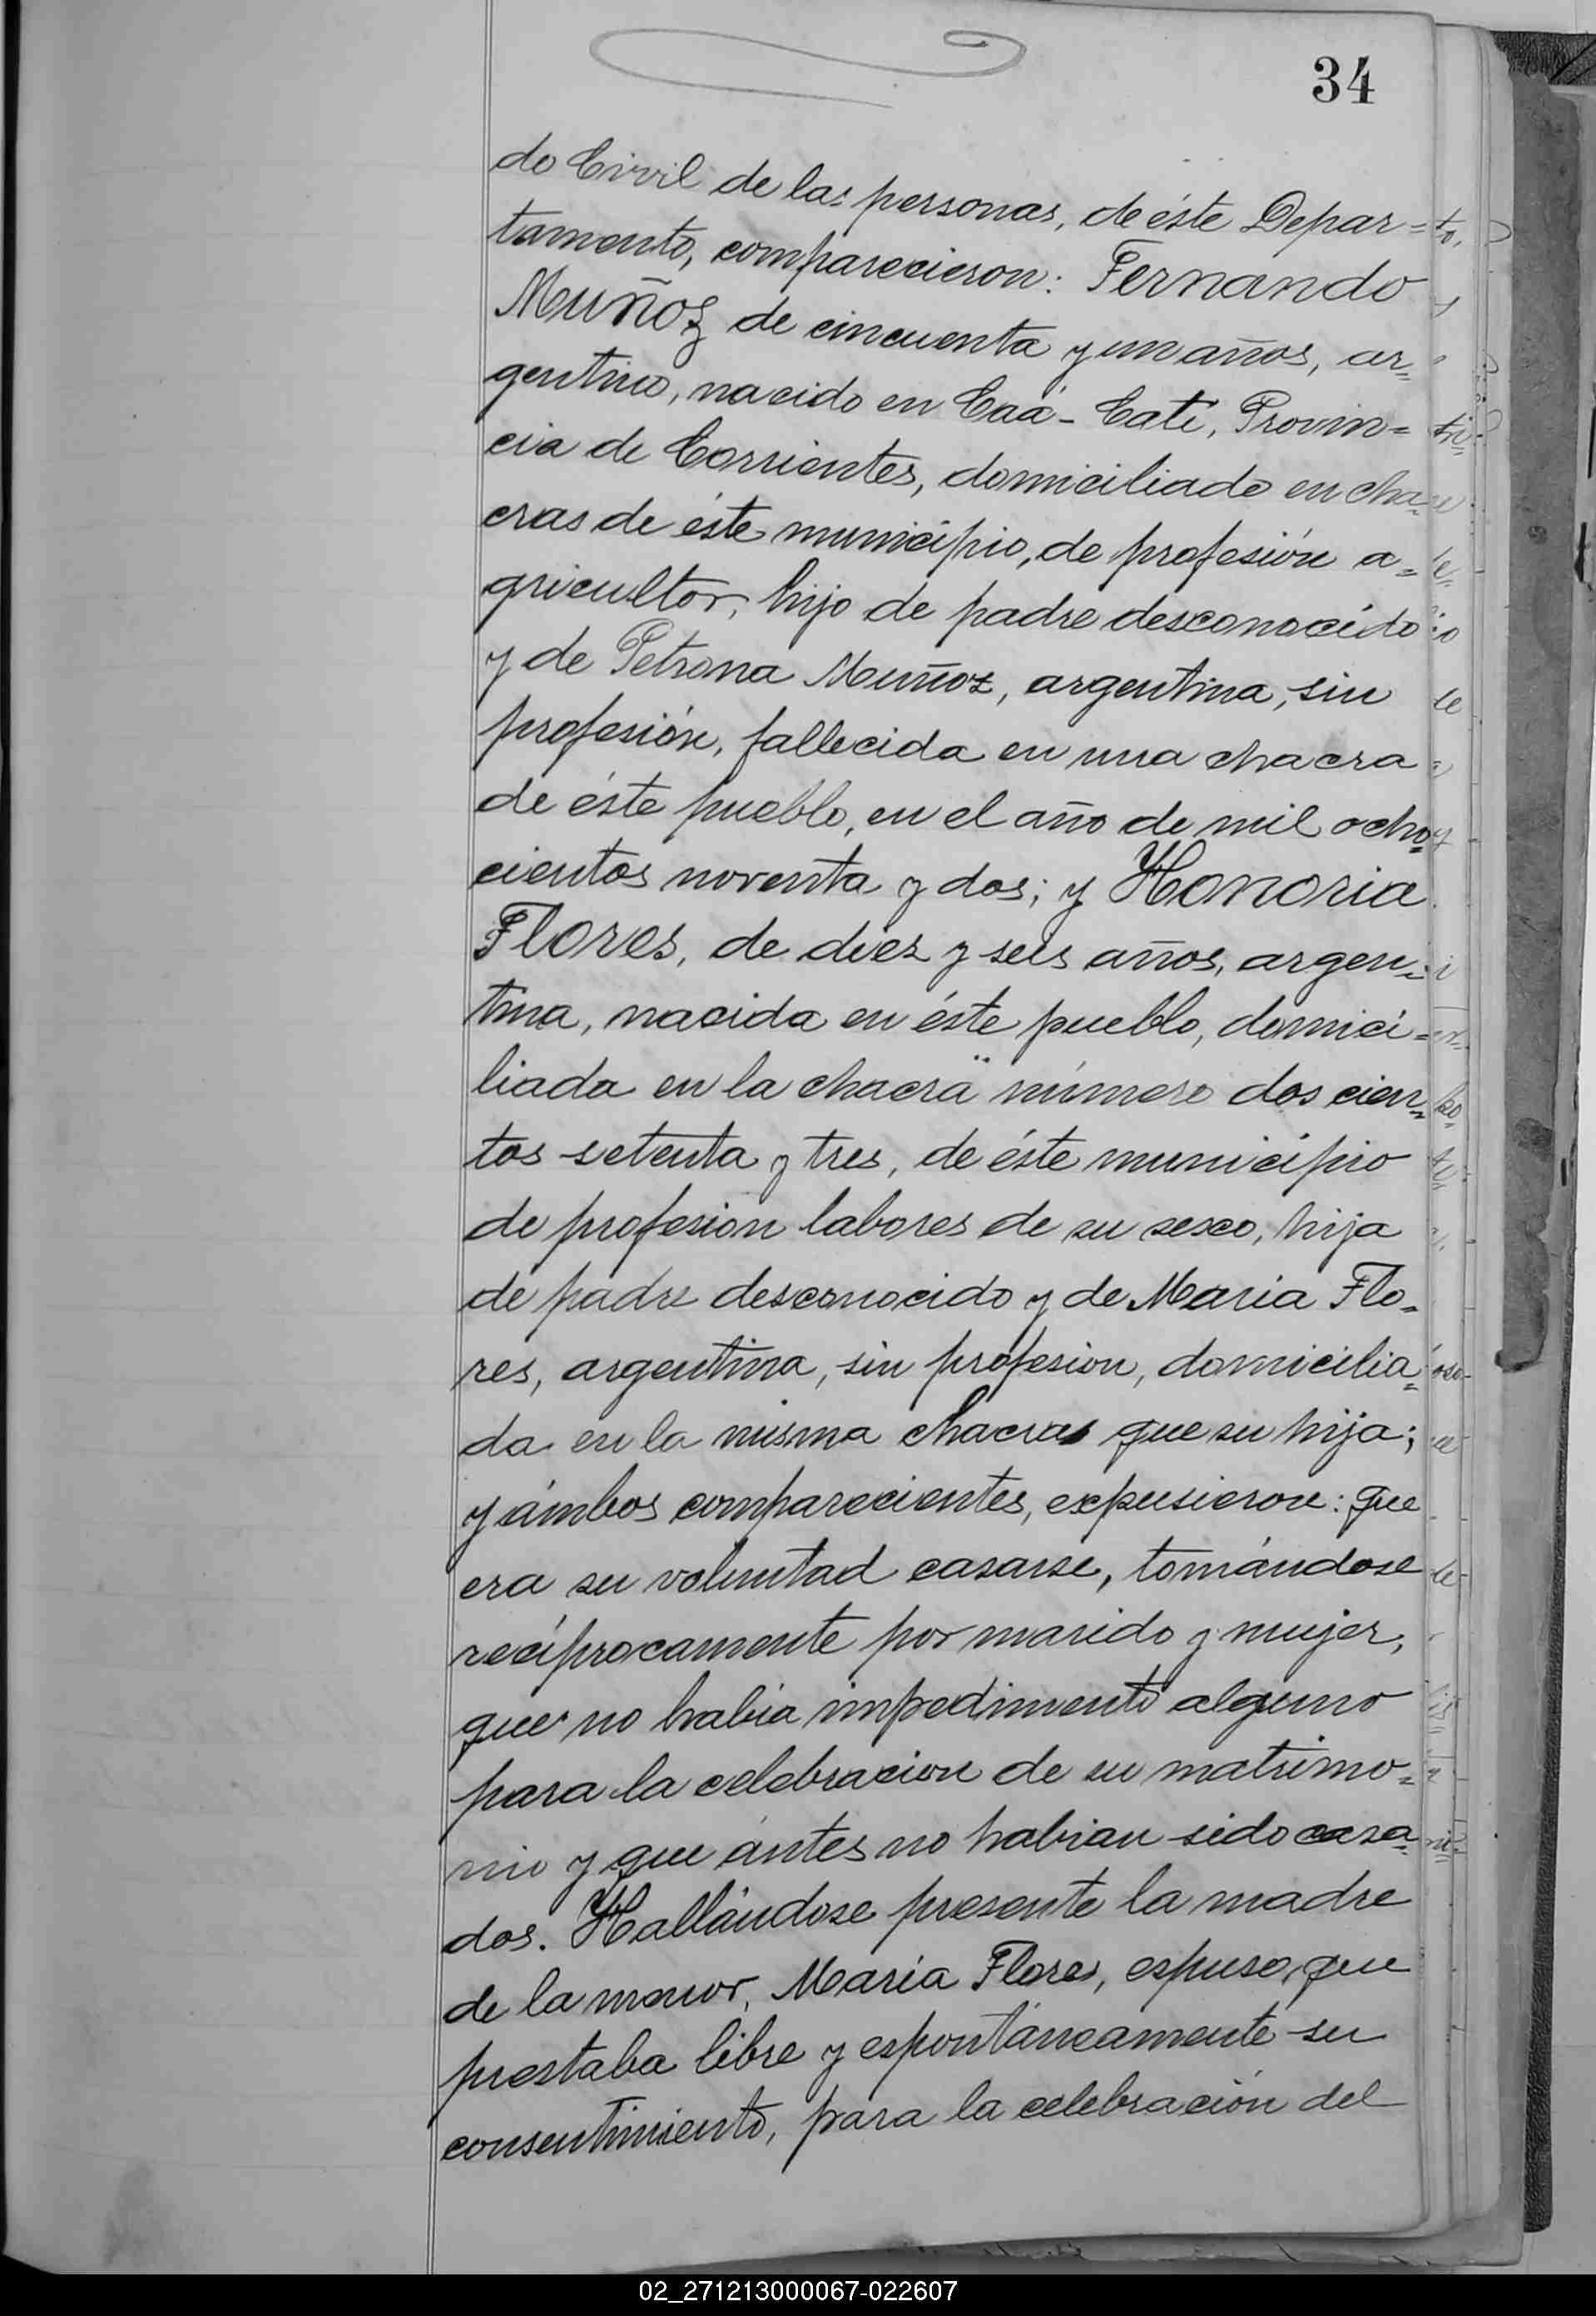 34
do Civil de las personas, de éste Depar=
tamento, comparecieron: Fernando
Muñoz de cincuenta y un años, ar=
gentino, nacido en Caá-Catí, Provin=
cia de Corrientes, domiciliado en cha=
cras de éste municipio, de profesión a=
gricultor, hijo de padre desconocido
y de Petrona Muñoz, argentina, sin
profesión, fallecida en una chacra
de éste pueblo, en el año de mil ocho=
cientos noventa y dos; y Honoria
Flores, de diez y seis años, argen=
tina, nacida en éste pueblo, domici=
liada en la chacra número dos cien=
tos setenta y tres, de éste municipio
de profesion labores de su sexo, hija
de padre desconocido y de Maria Flo=
res, argentina, sin profesion, domicilia=
da en la misma chacras que su hija;
y ámbos comparecientes, expusieron: que
era su voluntad casarse, tomándose
recíprocamente por marido y mujer,
que no habia impedimento alguno
para la celebracion de su matrimo=
nio y que ántes no habian sido casa=
dos. Hallándose presente la madre
de la menor, Maria Flores, espuso, que
prestaba libre y espontáneamente su
consentimiento, para la celebración del
02_271213000067-022607